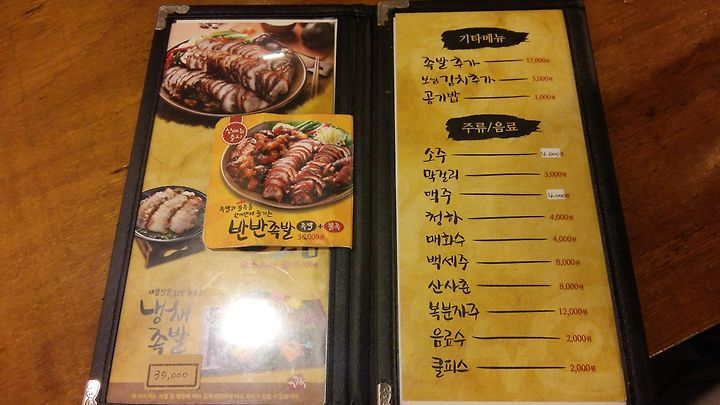 신메뉴
출시
족발과 불족을
한꺼번에 즐기는
반반족발 족발 + 불족
36,000원
냉채
족발
35,000
기타메뉴
족발추가 17,000원
보쌈김치추가 5,000원
공기밥 1,000원
주류/음료
소주 4,000원
막걸리 3,000원
맥주 4,000원
청하 4,000원
매화수 4,000원
백세주 8,000원
산사춘 8,000원
복분자주 12,000원
음료수 2,000원
쿨피스 2,000원